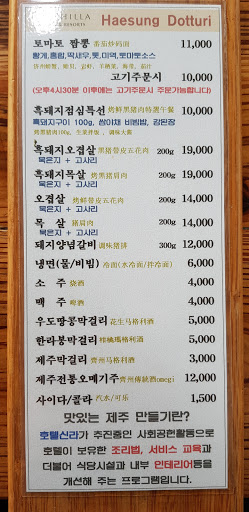 HILLA
& RESORTS
Haesung Dotturi
토마토 짬뽕 番茄炒码面 11,000
황게, 홍합, 딱새우, 톳, 미역, 토마토소스
고기주문시 10,000
(오후4시30분 이후에는 고기주문시 주문가능합니다)
흑돼지점심특선 烤鲜黑猪肉特選午餐 10,000
흑돼지구이 100g, 쌈야채 비빔밥, 강된장
烤黑猪肉100g, 生菜拌饭, 调味大酱
흑돼지오겹살 黑猪带皮五花肉 200g 19,000
묵은지 + 고사리
흑돼지목살 烤黑猪肩肉 200g 19,000
묵은지 + 고사리
오겹살 烤鲜带皮五花肉 200g 14,000
묵은지 + 고사리
목 살 猪肩肉 200g 14,000
묵은지 + 고사리
돼지양념갈비 调味猪排 300g 12,000
냉면(물/비빔) 冷面(水冷面/拌冷面) 6,000
소 주 烧酒 4,000
맥 주 啤酒 4,000
우도땅콩막걸리 花生马格利酒 5,000
한라봉막걸리 5,000
제주막걸리 济州马格利酒 3,000
제주전통오메기주 济州傳統酒(omegi) 12,000
사이다/콜라 汽水/可乐 1,500
맛있는 제주 만들기란?
호텔신라가 추진중인 사회공헌활동으로
호텔이 보유한 조리법, 서비스 교육과
더불어 식당시설과 내부 인테리어등을
개선해 주는 프로그램입니다.